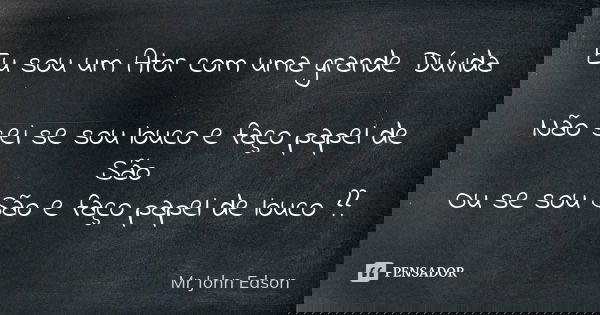 Eu sou um Ator com uma grande Dúvida
Não sei se sou louco e faço papel de
São
Ou se sou São e faço papel de louco ??
Mr John Edson
PENSADOR